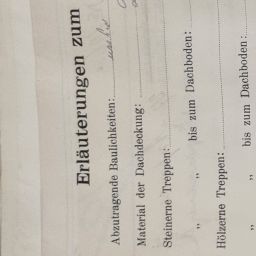 Erläuterungen zum
Abzutragende Baulichkeiten:
Material der Dachdeckung:
Steinerne Treppen:
„ „ bis zum Dachboden:
Hölzerne Treppen:
„ „ bis zum Dachboden: